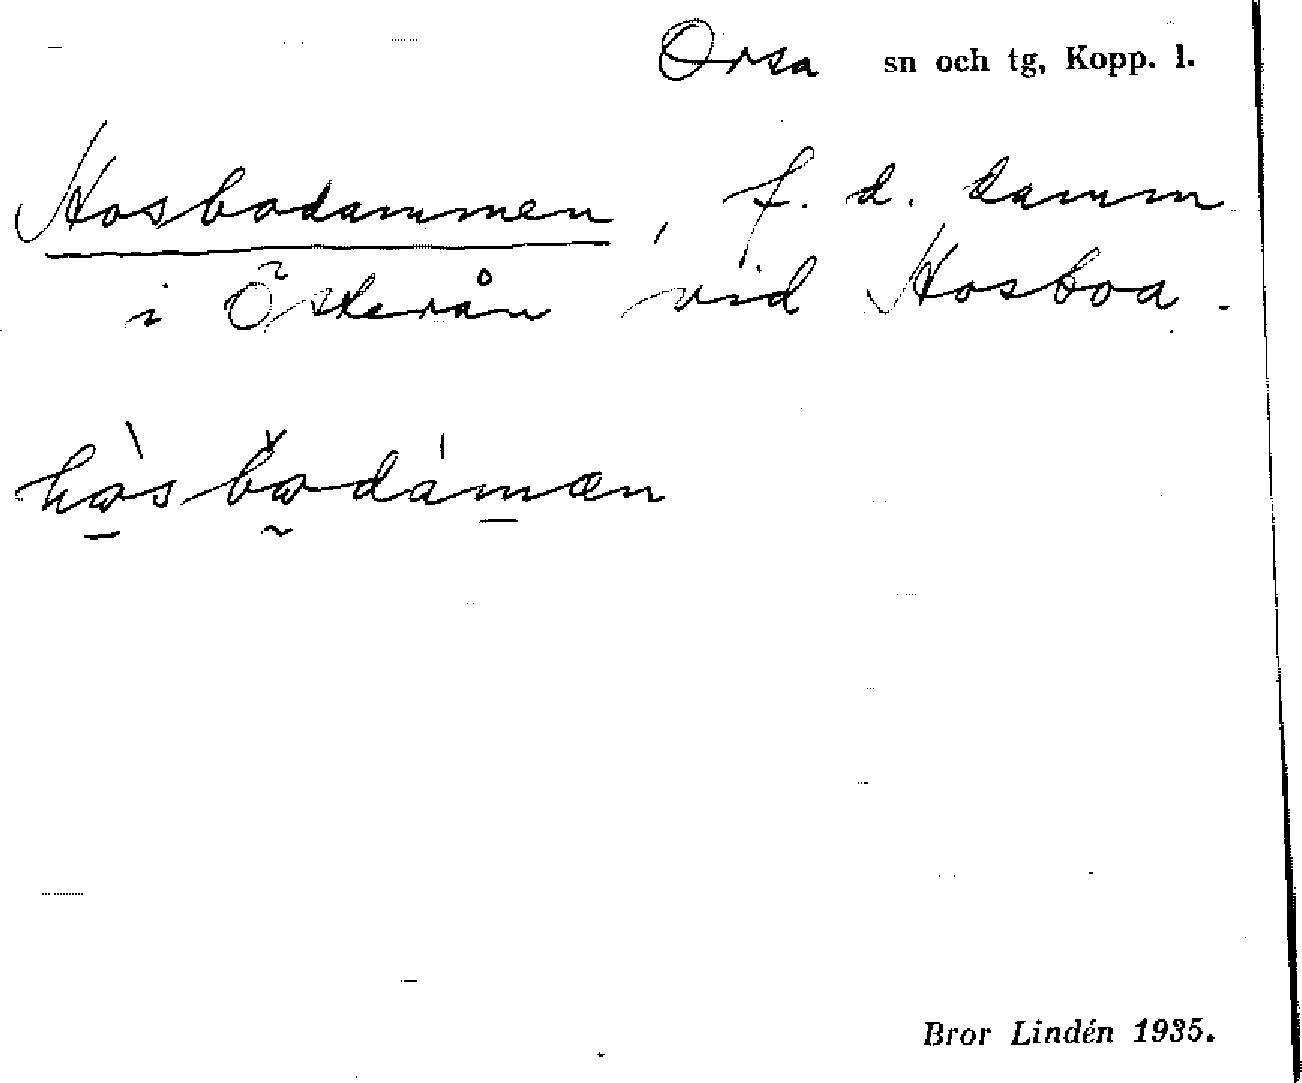 Orsa sn och tg, Kopp. l.
Hosbodammen, f. d. damm
i Österån vid Hosboa.
Bror Lindén 1935.